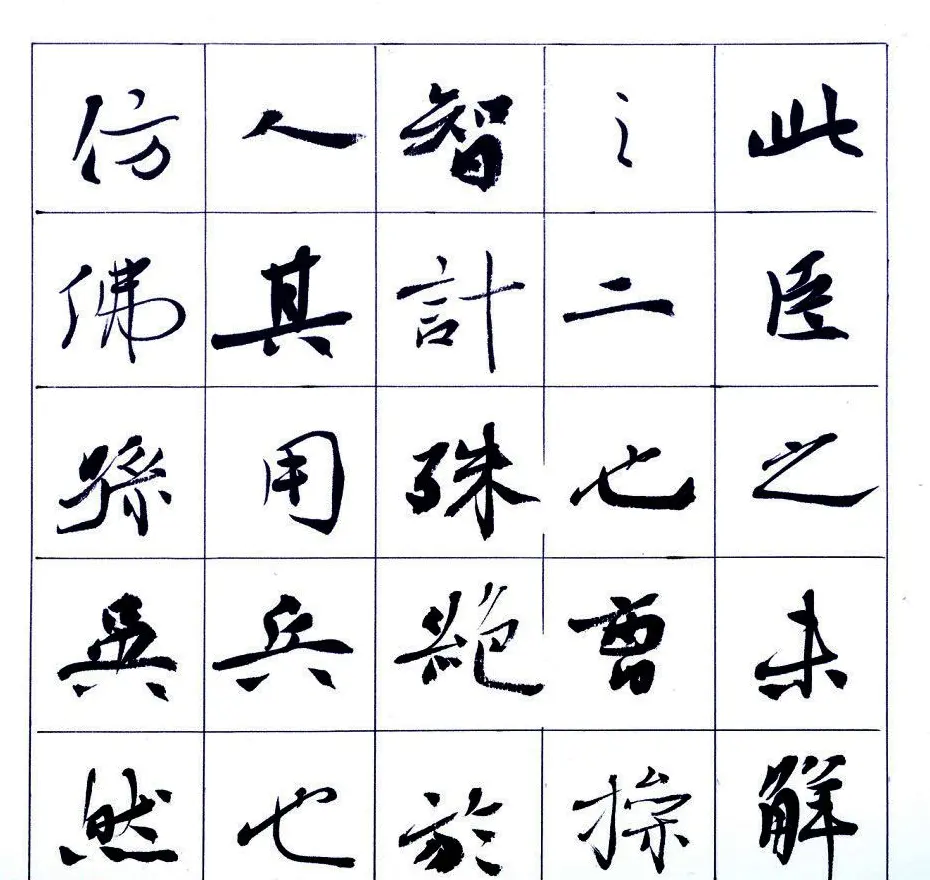 此臣之未解
之二也曹操
智計殊絕於
人其用兵也
仿佛孫吳然